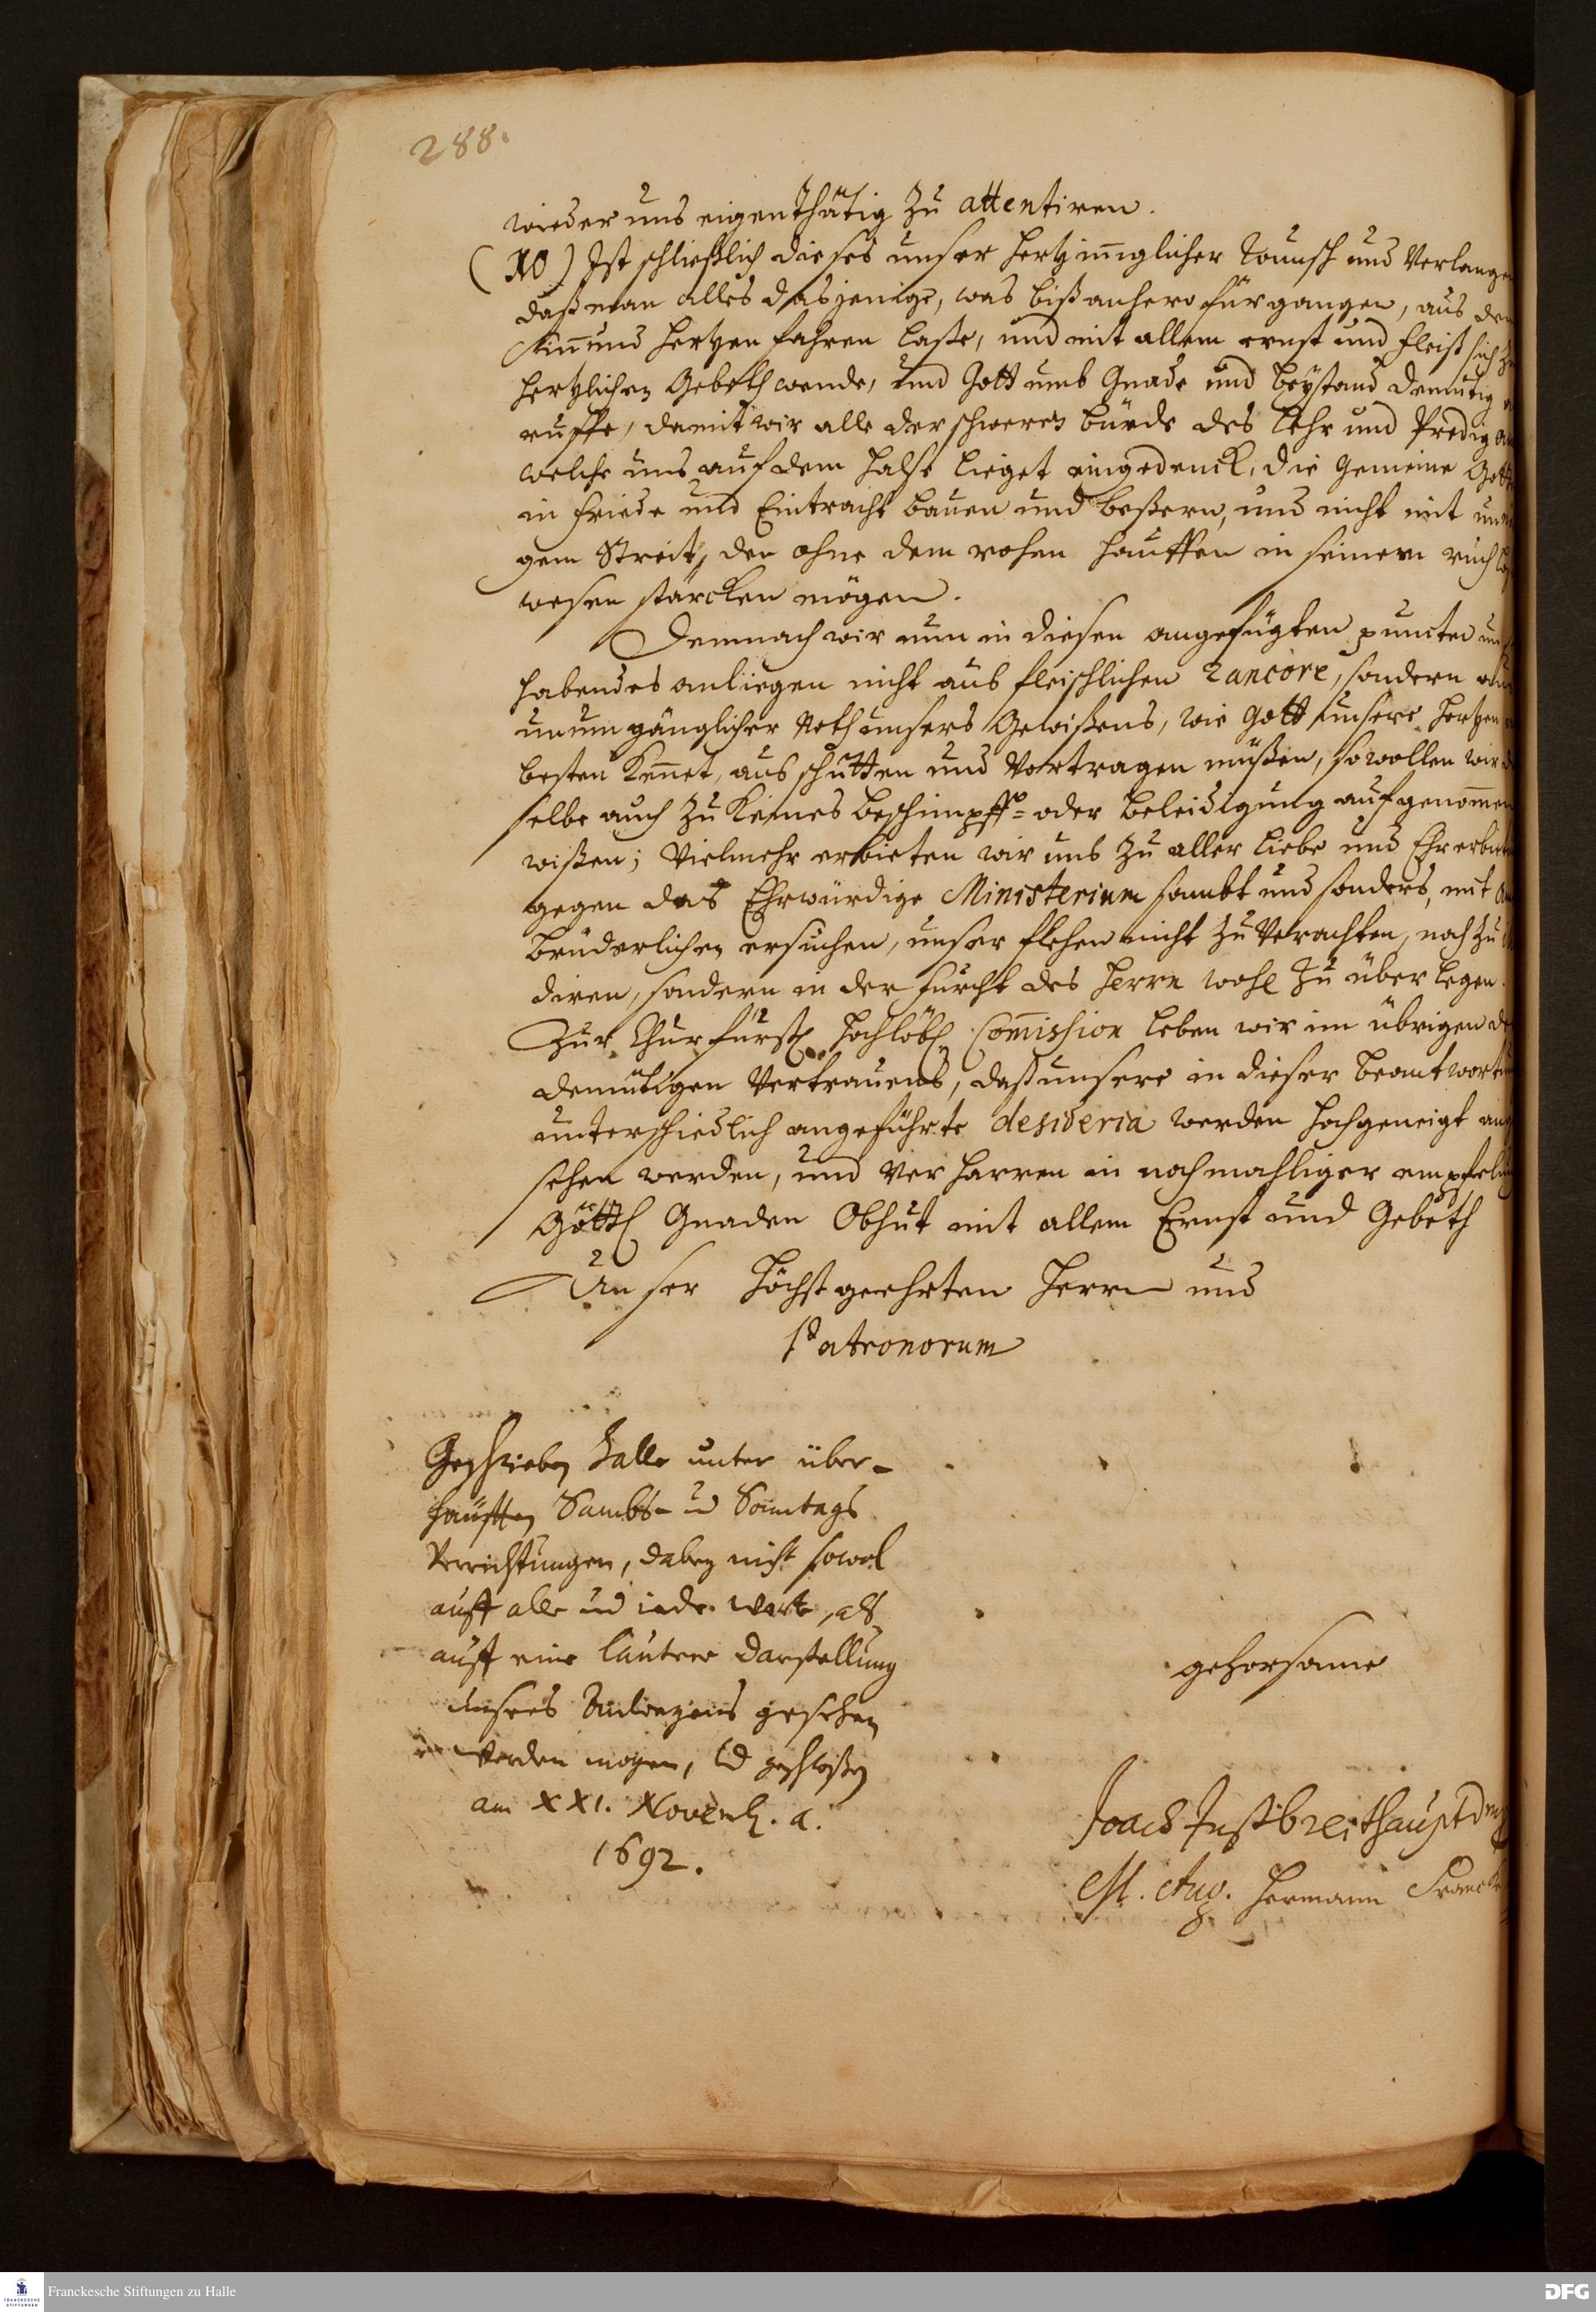 288.
wieder uns eigenthätig zu attentiren.
(10) Ist schließlich dieses unser hertzinniglicher Wunsch und Verlangen
daß man alles dasjenige, was bißanhero fürgangen, aus dem
Sinn und Hertzen fahren laße, und mit allem ernst und fleiß sich zu
hertzlichen Gebeth wende, und Gott umb Gnade und beystand demütig
ruffe, damit wir alle der schweren bürde des Lehr und Predig
welche uns auf dem Halse lieget eingedenck, die Gemeine Gott
in friede und Eintracht bauen und beßern, und nicht mit
gem Streit, den ohne dem rohen Hauffen in seinem ruchlo
wesen stärcken mögen.
Demnach wir nun in diesen angefügten puncten
habendes anliegen nicht aus fleischlichen rancore, sondern
unumgänglicher Noth unsers Gewißens, wie Gott unsere Hertzen
besten kennet, ausschütten und Vortragen müßen, so wollen wir
selbe auch zu keines beschimpff= oder beleidigung aufgenommen
wißen; Vielmehr erbieten wir uns zu aller Liebe und Ehrerbiet
gegen das Ehrwürdige Ministerium sambt und sonders, mit
brüderlichen ersuchen, unser flehen nicht zu Verachten, noch zu
diren, sondern in der furcht des Herrn wohl zu überlegen.
Zur Churfürstl. Hochlöbl. Commission leben wir im übrigen
demütigen Vertrauens, daß unsere in dieser beantwort
unterschiedlich angeführte desideria werden hochgeneigt
sehen werden, und verharren in nochmahliger empfel
Göttl. Gnaden Obhut mit allem Ernst und Gebeth
Unser Höchstgeehrten Herrn und
Patronorum
Geschrieben Halle unter über-
häufften Sambs- ud Sontags
Verrichtungen, dabey nicht sowol
auff alle ud iede Worte, als
auff eine lautere Darstellung
unsers gesehen
werden mögen, ud geschloßen
am XXI. Novemb. a.
1692.
gehorsame
Joach Just Breithaupt D
M. Aug. Hermann Francke
Franckesche Stiftungen zu Halle
DFG